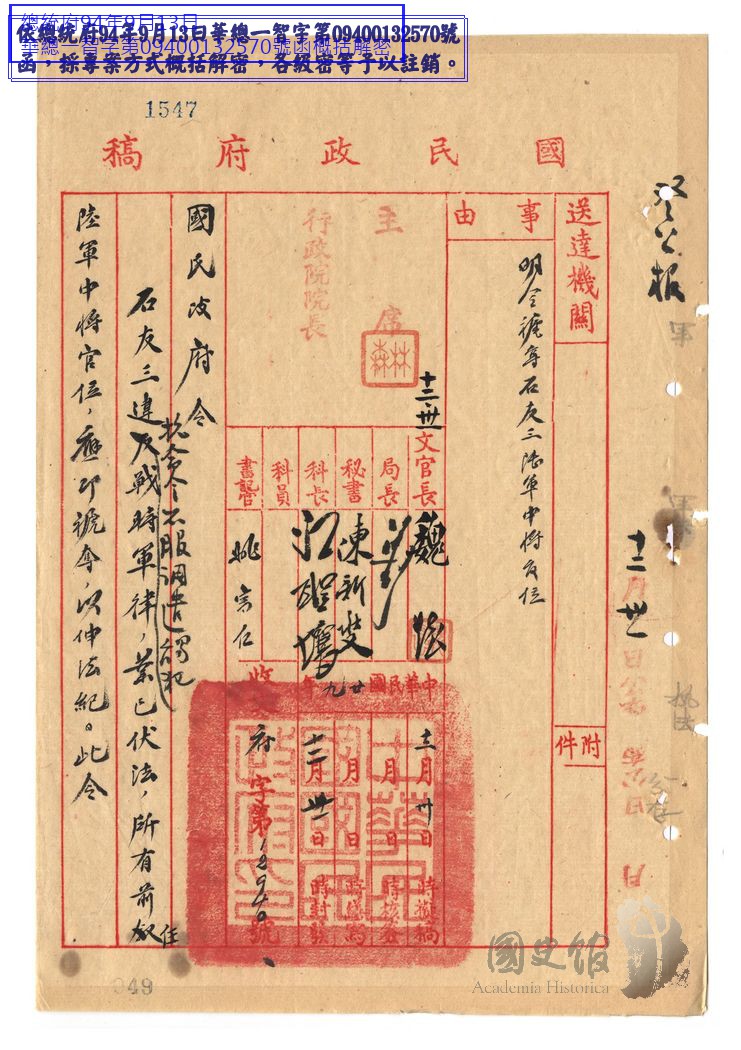 總統府94年9月13日
華總一智字第09400132570號函概括解密
依總統府94年9月13日華總一智字第09400132570號
函，採專案方式概括解密，各級密等予以註銷。
1547
國民政府稿
登公報
十二 卅一
送達機關
附件
事由
明令褫奪石友三陸軍中將官位
主席
林森
行政院院長
十二、卅一
文官長
魏懷
局長
秘書
陳新燮
科長
科員
書記官
姚宗仁
中華民國廿九年
十二月卅日 時擬稿
月 日 時核簽
月 日 時繕寫
十二月卅一日 時封發
收文 府字第12940號
國民政府令
石友三違反戰時軍律，業已伏法，所有前敘任
抗命令不服調遣觸犯
陸軍中將官位，應即褫奪，以伸法紀。此令
049
國史館
Academia Historica